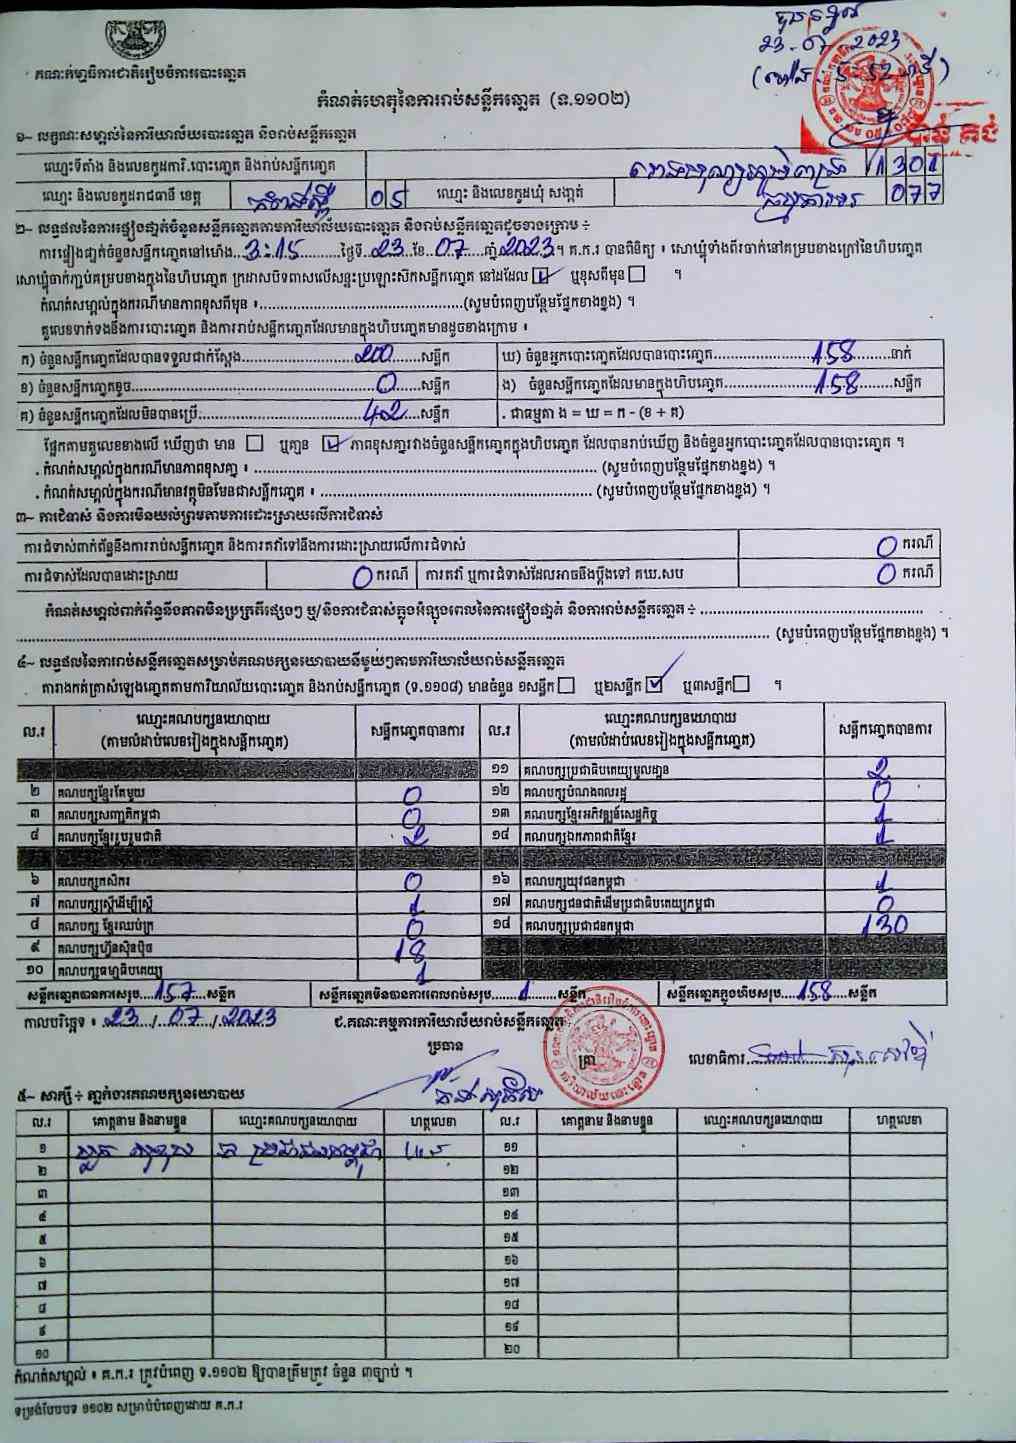 គណៈកម្មាធិការជាតិរៀបចំការបោះឆ្នោត
23-07-2023
កំណត់ហេតុនៃការរាប់សន្លឹកឆ្នោត (ទ.១១០២)
១- លក្ខណៈសម្គាល់នៃការិយាល័យបោះឆ្នោត និងរាប់សន្លឹកឆ្នោត
ឈ្មោះទីតាំង និងលេខកូដការិ.បោះឆ្នោត និងរាប់សន្លឹកឆ្នោត 1301
ឈ្មោះ និងលេខកូដរាជធានី ខេត្ត កំពង់ស្ពឺ 05 ឈ្មោះ និងលេខកូដឃុំ សង្កាត់ 077
២- លទ្ធផលនៃការផ្ទៀងផ្ទាត់ចំនួនសន្លឹកឆ្នោតតាមការិយាល័យបោះឆ្នោត និងរាប់សន្លឹកឆ្នោតដូចខាងក្រោម ៖
ការផ្ទៀងផ្ទាត់ចំនួនសន្លឹកឆ្នោតនៅម៉ោង 3:15 ថ្ងៃទី 23 ខែ 07 ឆ្នាំ 2023 ។ គ.ក.រ បានពិនិត្យ ៖ សោឃ្មុំទាំងពីរចាក់នៅគម្របខាងក្រៅនៃហិបឆ្នោត
សោឃ្មុំចាក់ភ្ជាប់គម្របខាងក្នុងនៃហិបឆ្នោត ក្រដាសបិទពាសលើសន្ទះប្រឡោះស៊កសន្លឹកឆ្នោត នៅដដែល ☑ ឬខុសពីមុន ☐ ។
កំណត់សម្គាល់ក្នុងករណីមានភាពខុសពីមុន ៖ (សូមបំពេញបន្ថែមផ្នែកខាងខ្នង) ។
តួលេខទាក់ទងនឹងការបោះឆ្នោត និងការរាប់សន្លឹកឆ្នោតដែលមានក្នុងហិបឆ្នោតមានដូចខាងក្រោម ៖
ក) ចំនួនសន្លឹកឆ្នោតដែលបានទទួលជាក់ស្តែង 200 សន្លឹក ឃ) ចំនួនអ្នកបោះឆ្នោតដែលបានបោះឆ្នោត 158 នាក់
ខ) ចំនួនសន្លឹកឆ្នោតខូច 0 សន្លឹក ង) ចំនួនសន្លឹកឆ្នោតដែលមានក្នុងហិបឆ្នោត 158 សន្លឹក
គ) ចំនួនសន្លឹកឆ្នោតដែលមិនបានប្រើ 42 សន្លឹក . ជាធម្មតា ង = ឃ = ក - (ខ + គ)
ផ្អែកតាមតួលេខខាងលើ ឃើញថា មាន ☐ ឬគ្មាន ☑ ភាពខុសគ្នារវាងចំនួនសន្លឹកឆ្នោតក្នុងហិបឆ្នោត ដែលបានរាប់ឃើញ និងចំនួនអ្នកបោះឆ្នោតដែលបានបោះឆ្នោត ។
. កំណត់សម្គាល់ក្នុងករណីមានភាពខុសគ្នា ៖ (សូមបំពេញបន្ថែមផ្នែកខាងខ្នង) ។
. កំណត់សម្គាល់ក្នុងករណីមានវត្ថុមិនមែនជាសន្លឹកឆ្នោត ៖ (សូមបំពេញបន្ថែមផ្នែកខាងខ្នង) ។
៣- ការជំទាស់ និងការមិនយល់ព្រមតាមការដោះស្រាយលើការជំទាស់
ការជំទាស់ពាក់ព័ន្ធនឹងការរាប់សន្លឹកឆ្នោត និងការតវ៉ាទៅនឹងការដោះស្រាយលើការជំទាស់ 0 ករណី
ការជំទាស់ដែលបានដោះស្រាយ 0 ករណី ការតវ៉ា ឬការជំទាស់ដែលអាចនឹងប្តឹងទៅ គឃ.សប 0 ករណី
កំណត់សម្គាល់ពាក់ព័ន្ធនឹងភាពមិនប្រក្រតីផ្សេងៗ ឬ/និងការជំទាស់ក្នុងអំឡុងពេលនៃការផ្ទៀងផ្ទាត់ និងការរាប់សន្លឹកឆ្នោត ៖
(សូមបំពេញបន្ថែមផ្នែកខាងខ្នង) ។
៤- លទ្ធផលនៃការរាប់សន្លឹកឆ្នោតសម្រាប់គណបក្សនយោបាយនីមួយៗតាមការិយាល័យរាប់សន្លឹកឆ្នោត
តារាងកត់ត្រាសំឡេងឆ្នោតតាមការិយាល័យបោះឆ្នោត និងរាប់សន្លឹកឆ្នោត (ទ.១១០៨) មានចំនួន ១សន្លឹក ☐ ឬ២សន្លឹក ☑ ឬ៣សន្លឹក ☐ ។
ល.រ ឈ្មោះគណបក្សនយោបាយ (តាមលំដាប់លេខរៀងក្នុងសន្លឹកឆ្នោត) សន្លឹកឆ្នោតបានការ ល.រ ឈ្មោះគណបក្សនយោបាយ (តាមលំដាប់លេខរៀងក្នុងសន្លឹកឆ្នោត) សន្លឹកឆ្នោតបានការ
១១ គណបក្សប្រជាធិបតេយ្យមូលដ្ឋាន 2
២ គណបក្សខ្មែរតែមួយ 0 ១២ គណបក្សបំណងពលរដ្ឋ 0
៣ គណបក្សសញ្ជាតិកម្ពុជា 0 ១៣ គណបក្សខ្មែរអភិវឌ្ឍន៍សេដ្ឋកិច្ច 1
៤ គណបក្សខ្មែររួបរួមជាតិ 2 ១៤ គណបក្សឯកភាពជាតិខ្មែរ 1
៦ គណបក្សកសិករ 0 ១៦ គណបក្សយុវជនកម្ពុជា 1
៧ គណបក្សស្ត្រីដើម្បីស្ត្រី 1 ១៧ គណបក្សជនជាតិដើមប្រជាធិបតេយ្យកម្ពុជា 0
៨ គណបក្ស ខ្មែរឈប់ក្រ 0 ១៨ គណបក្សប្រជាជនកម្ពុជា 130
៩ គណបក្សហ្វ៊ុនស៊ិនប៉ិច 18
១០ គណបក្សធម្មាធិបតេយ្យ 1
សន្លឹកឆ្នោតបានការសរុប 157 សន្លឹក សន្លឹកឆ្នោតមិនបានការពេលរាប់សរុប 1 សន្លឹក សន្លឹកឆ្នោតក្នុងហិបសរុប 158 សន្លឹក
កាលបរិច្ឆេទ ៖ 23/07/2023 ជ.គណៈកម្មការការិយាល័យរាប់សន្លឹកឆ្នោត
ប្រធាន
ត្រា លេខាធិការ
៥- សាក្សី ៖ ភ្នាក់ងារគណបក្សនយោបាយ
ល.រ គោត្តនាម និងនាមខ្លួន ឈ្មោះគណបក្សនយោបាយ ហត្ថលេខា ល.រ គោត្តនាម និងនាមខ្លួន ឈ្មោះគណបក្សនយោបាយ ហត្ថលេខា
១ គ ប្រជាជនកម្ពុជា ១១
២ ១២
៣ ១៣
៤ ១៤
៥ ១៥
៦ ១៦
៧ ១៧
៨ ១៨
៩ ១៩
១០ ២០
កំណត់សម្គាល់ ៖ គ.ក.រ ត្រូវបំពេញ ទ.១១០២ ឱ្យបានត្រឹមត្រូវ ចំនួន ៣ច្បាប់ ។
ទម្រង់បែបបទ ១១០២ សម្រាប់បំពេញដោយ គ.ក.រ